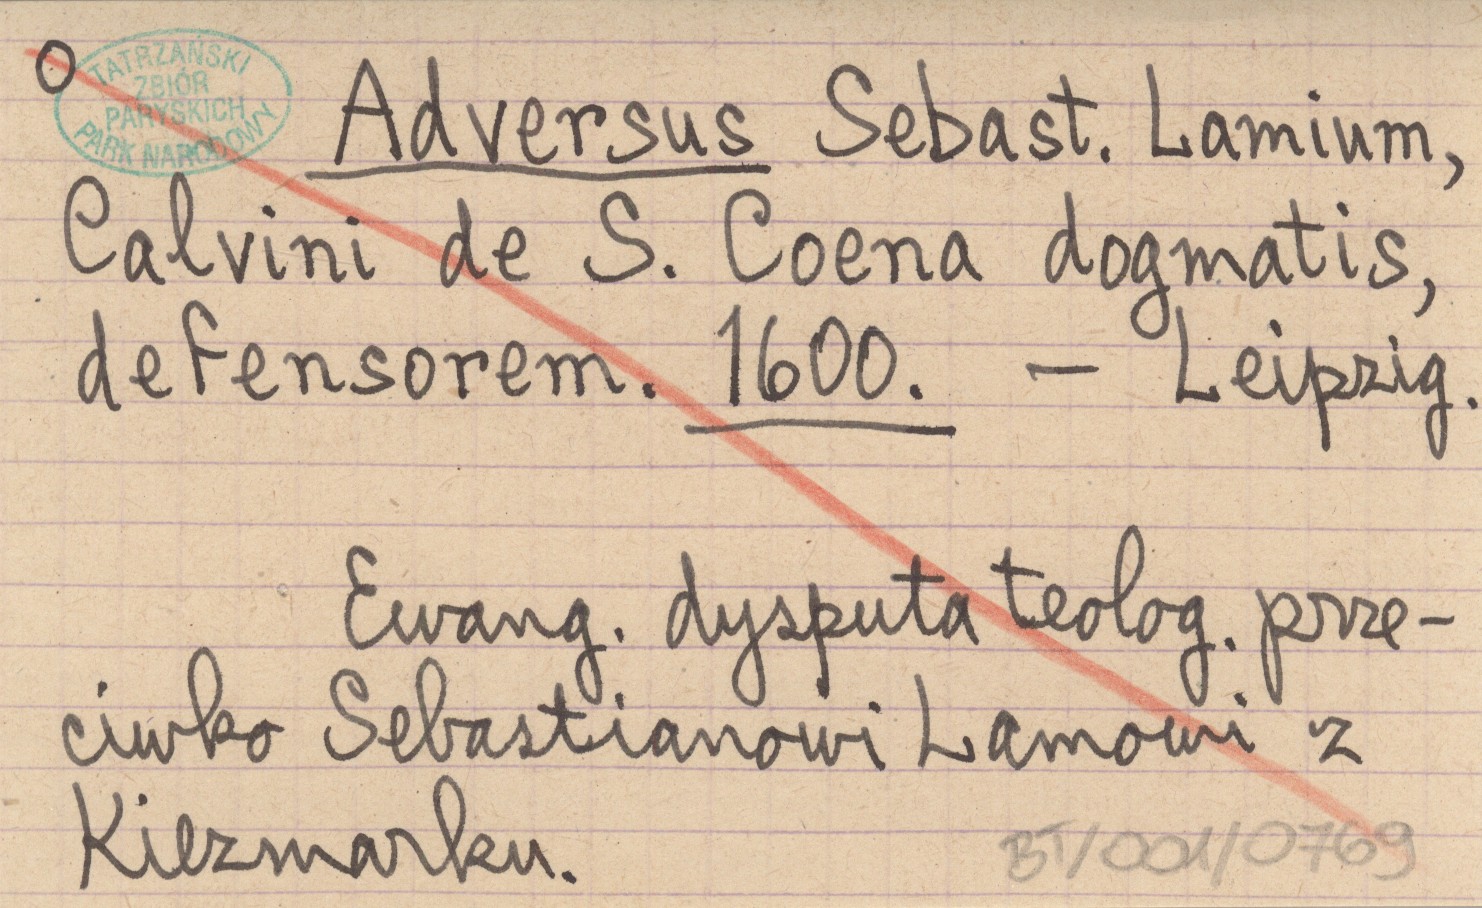 O
TATRZAŃSKI
ZBIÓR
PARYSKICH
PARK NARODOWY
Adversus Sebast. Lamium,
Calvini de S. Coena dogmatis,
defensorem. 1600. — Leipzig.
Ewang. dysputa teolog. prze-
ciwko Sebastianowi Lamowi z
Kiezmarku.
BT/001/0769